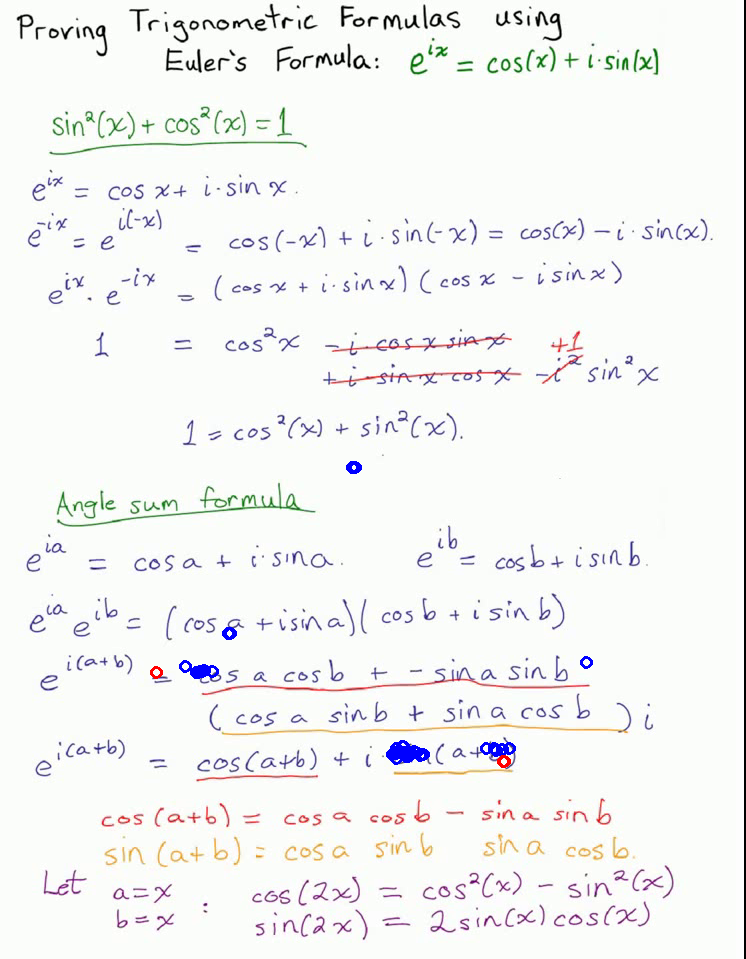 Proving Trigonometric Formulas using
Euler's Formula: e^{ix} = cos(x) + i·sin(x)
sin²(x) + cos²(x) = 1
e^{ix} = cos x + i·sin x.
e^{-ix} = e^{i(-x)} = cos(-x) + i·sin(-x) = cos(x) - i·sin(x).
e^{ix}·e^{-ix} = (cos x + i·sin x)(cos x - i sin x)
1 = cos²x - i·cos x sin x +1
+ i·sin x cos x - i² sin²x
1 = cos²(x) + sin²(x).
Angle sum formula
e^{ia} = cos a + i·sin a. e^{ib} = cos b + i sin b.
e^{ia} e^{ib} = (cos a + i sin a)(cos b + i sin b)
e^{i(a+b)} = a cos b + - sin a sin b
(cos a sin b + sin a cos b) i
e^{i(a+b)} = cos(a+b) + i (a+
cos(a+b) = cos a cos b - sin a sin b
sin(a+b) = cos a sin b sin a cos b.
Let a=x : cos(2x) = cos²(x) - sin²(x)
b=x sin(2x) = 2 sin(x) cos(x)